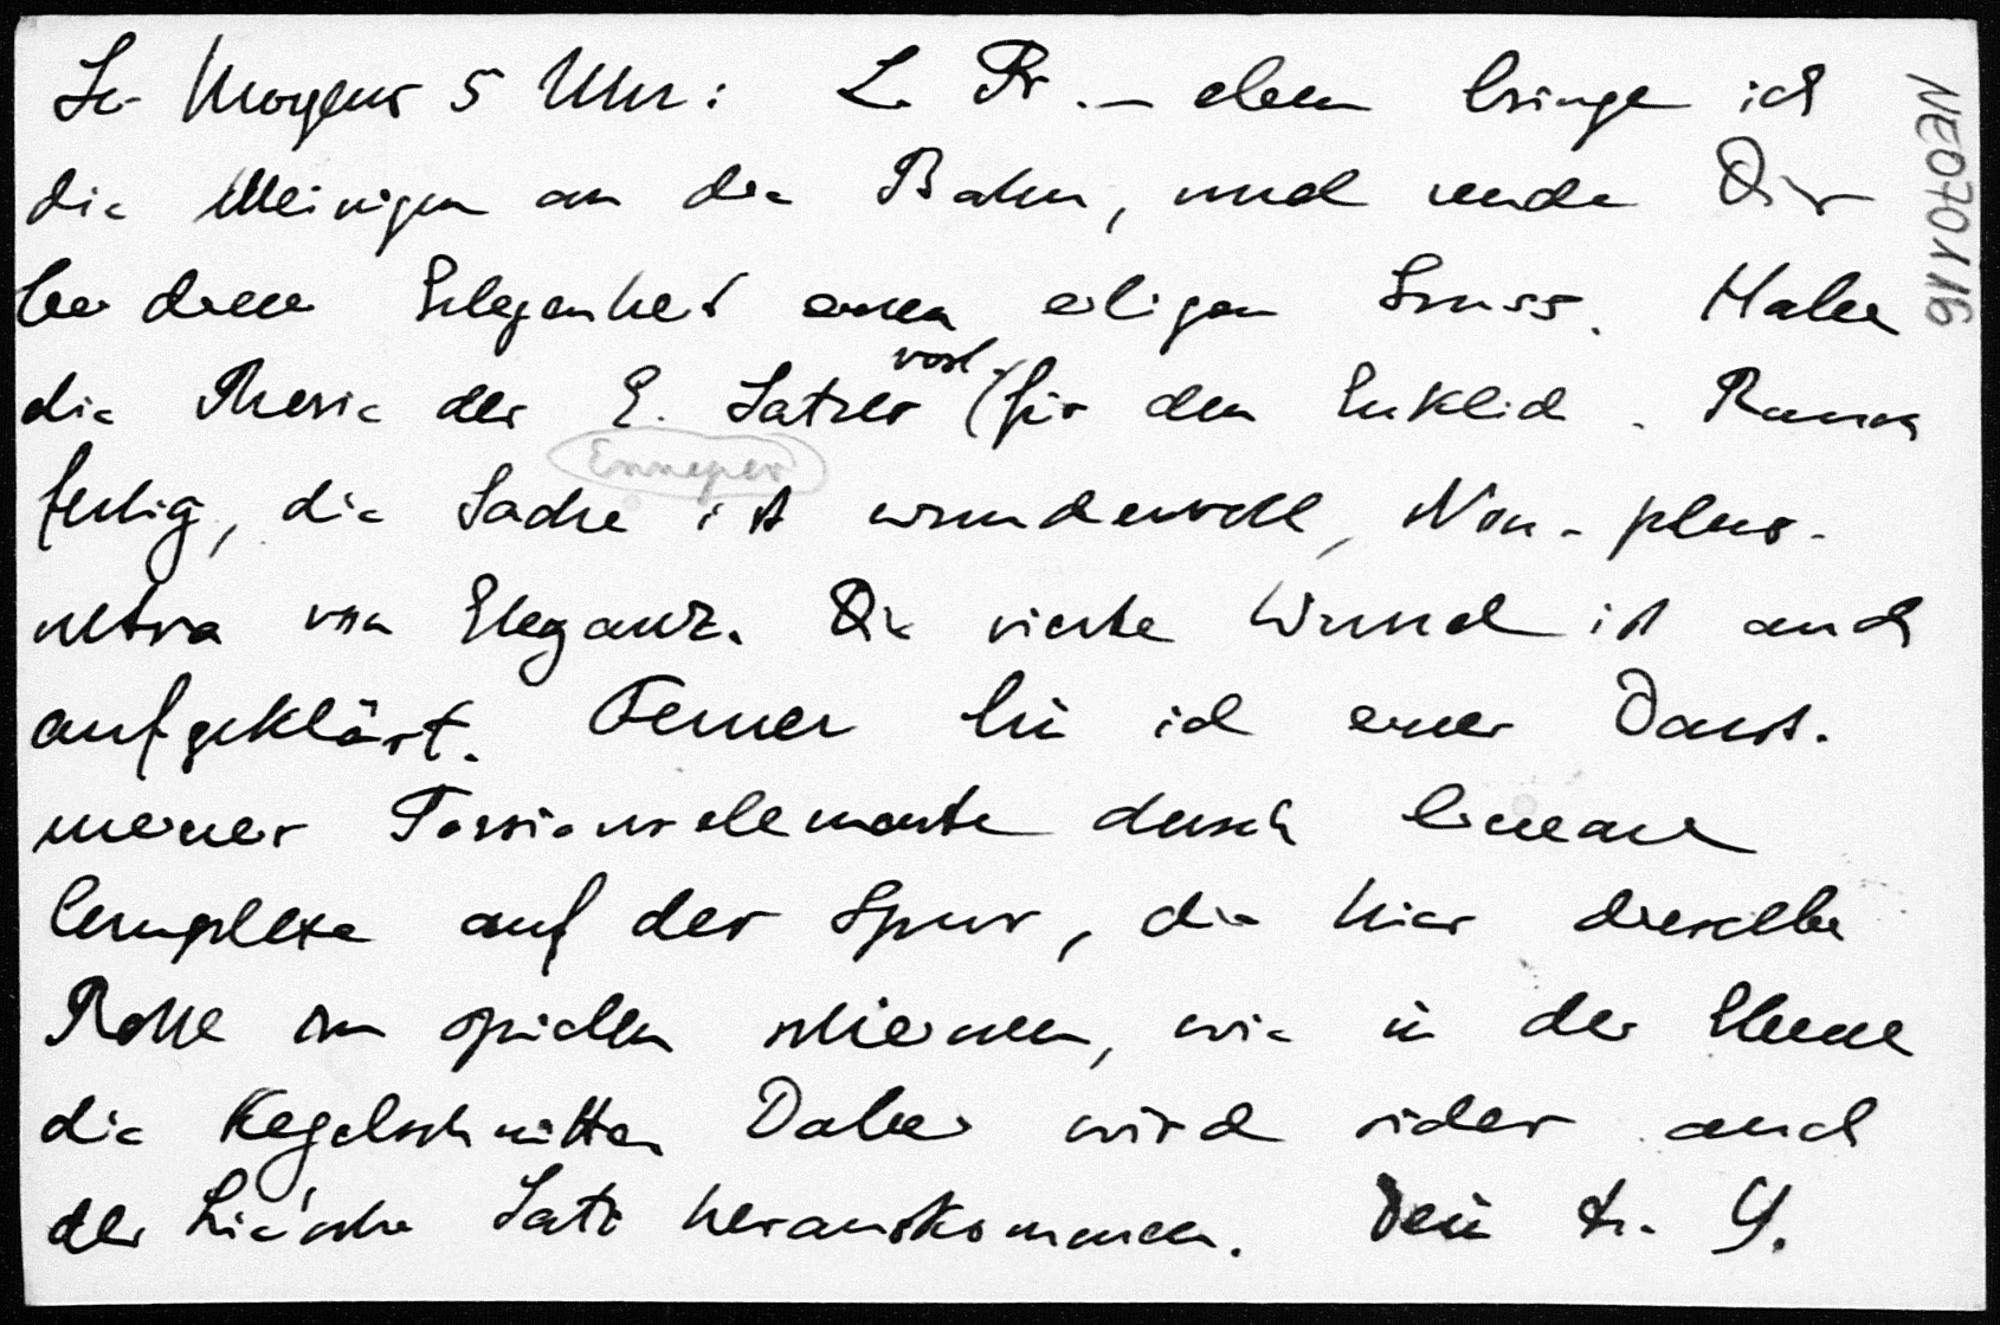 So Morgens 5 Uhr: L. Fr. — eben bringe ich
die Meinigen an die Bahn, und sende Dir
bei dieser Gelegenheit einen eiligen Gruss. Habe
die Theorie des E. Satzes vorl. (für den Euklid. Raum
Enneper
fertig, die Sache ist wundervoll, Non-plus-
ultra von Eleganz. Die vierte Wurzel ist auch
aufgeklärt. Ferner bin ich einer Darst.
meiner Torsionselemente durch lineare
Complexe auf der Spur, die hier dieselbe
Rolle zu spielen scheinen, wie in der Ebene
die Kegelschnitte. Dabei wird sicher auch
der Lie'sche Satz herauskommen. Dein tr. G.
NE070116